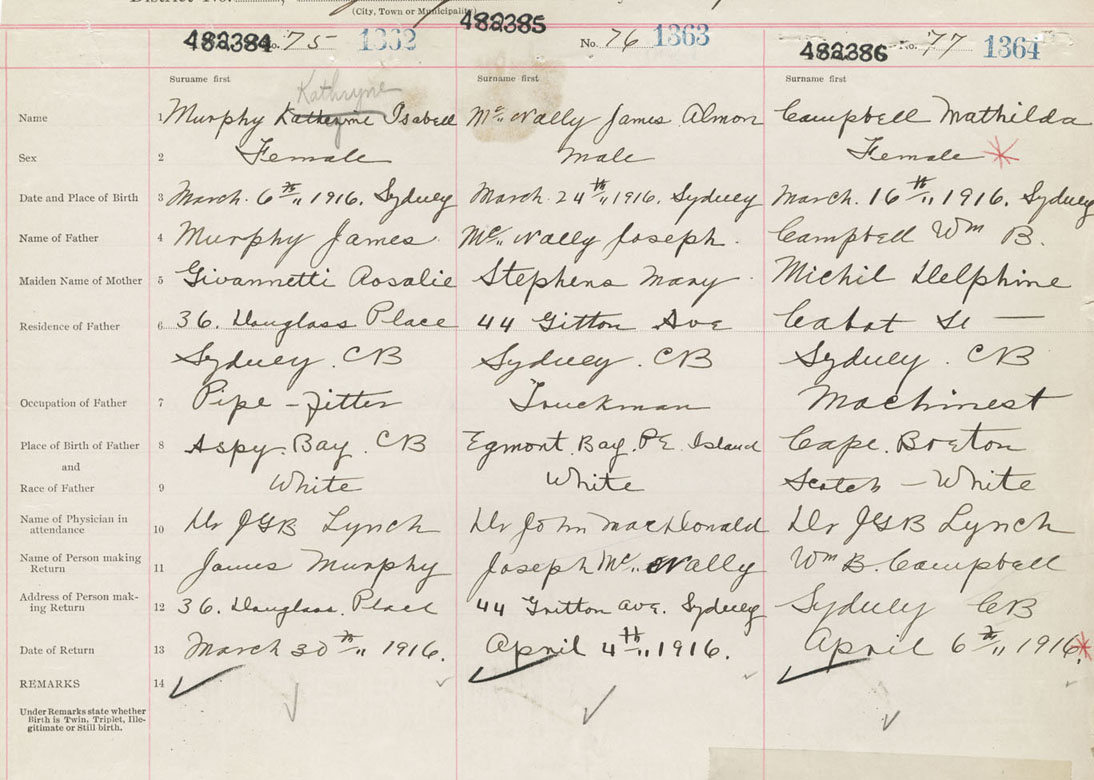 (City, Town or Municipality)
482384 No. 75 1362 482385 No. 76 1363 482386 No. 77 1364
Surname first Surname first Surname first
Kathryne
Name 1 Murphy Katheryne Isabell Mc Nally James Almon Campbell Mathilda
Sex 2 Female Male Female *
Date and Place of Birth 3 March. 6th, 1916. Sydney March. 24th, 1916. Sydney March. 16th, 1916. Sydney
Name of Father 4 Murphy James Mc Nally Joseph. Campbell Wm B.
Maiden Name of Mother 5 Givannetti Rosalie Stephens Mary Michil Delphine
Residence of Father 6 36. Douglass Place 44 Gitton Ave Cabot St —
Sydney. CB Sydney. CB Sydney. CB
Occupation of Father 7 Pipe - fitter Truckman Machinest
Place of Birth of Father 8 Aspy. Bay. CB Egmont. Bay. P.E. Island Cape. Breton
and
Race of Father 9 White White Scotch - White
Name of Physician in attendance 10 Dr JGB Lynch Dr John MacDonald Dr JGB Lynch
Name of Person making Return 11 James Murphy Joseph Mc Nally Wm B. Campbell
Address of Person making Return 12 36. Douglass. Place 44 Gritton Ave. Sydney Sydney CB
Date of Return 13 March 30th, 1916. April 4th, 1916. April 6th, 1916. *
REMARKS 14
Under Remarks state whether
Birth is Twin, Triplet, Ille-
gitimate or Still birth.